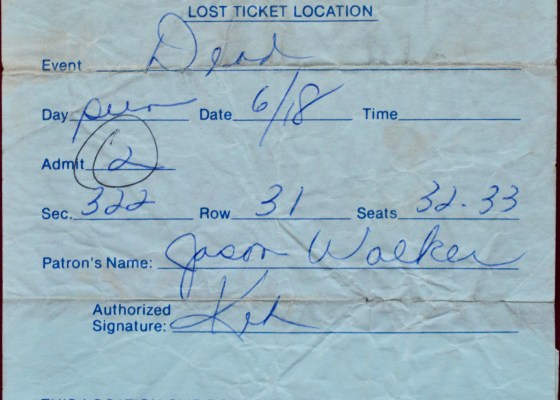 LOST TICKET LOCATION
Event Dead
Day Date 6/18 Time
Admit 2
Sec. 322 Row 31 Seats 32-33
Patron's Name: Jason Walker
Authorized
Signature: